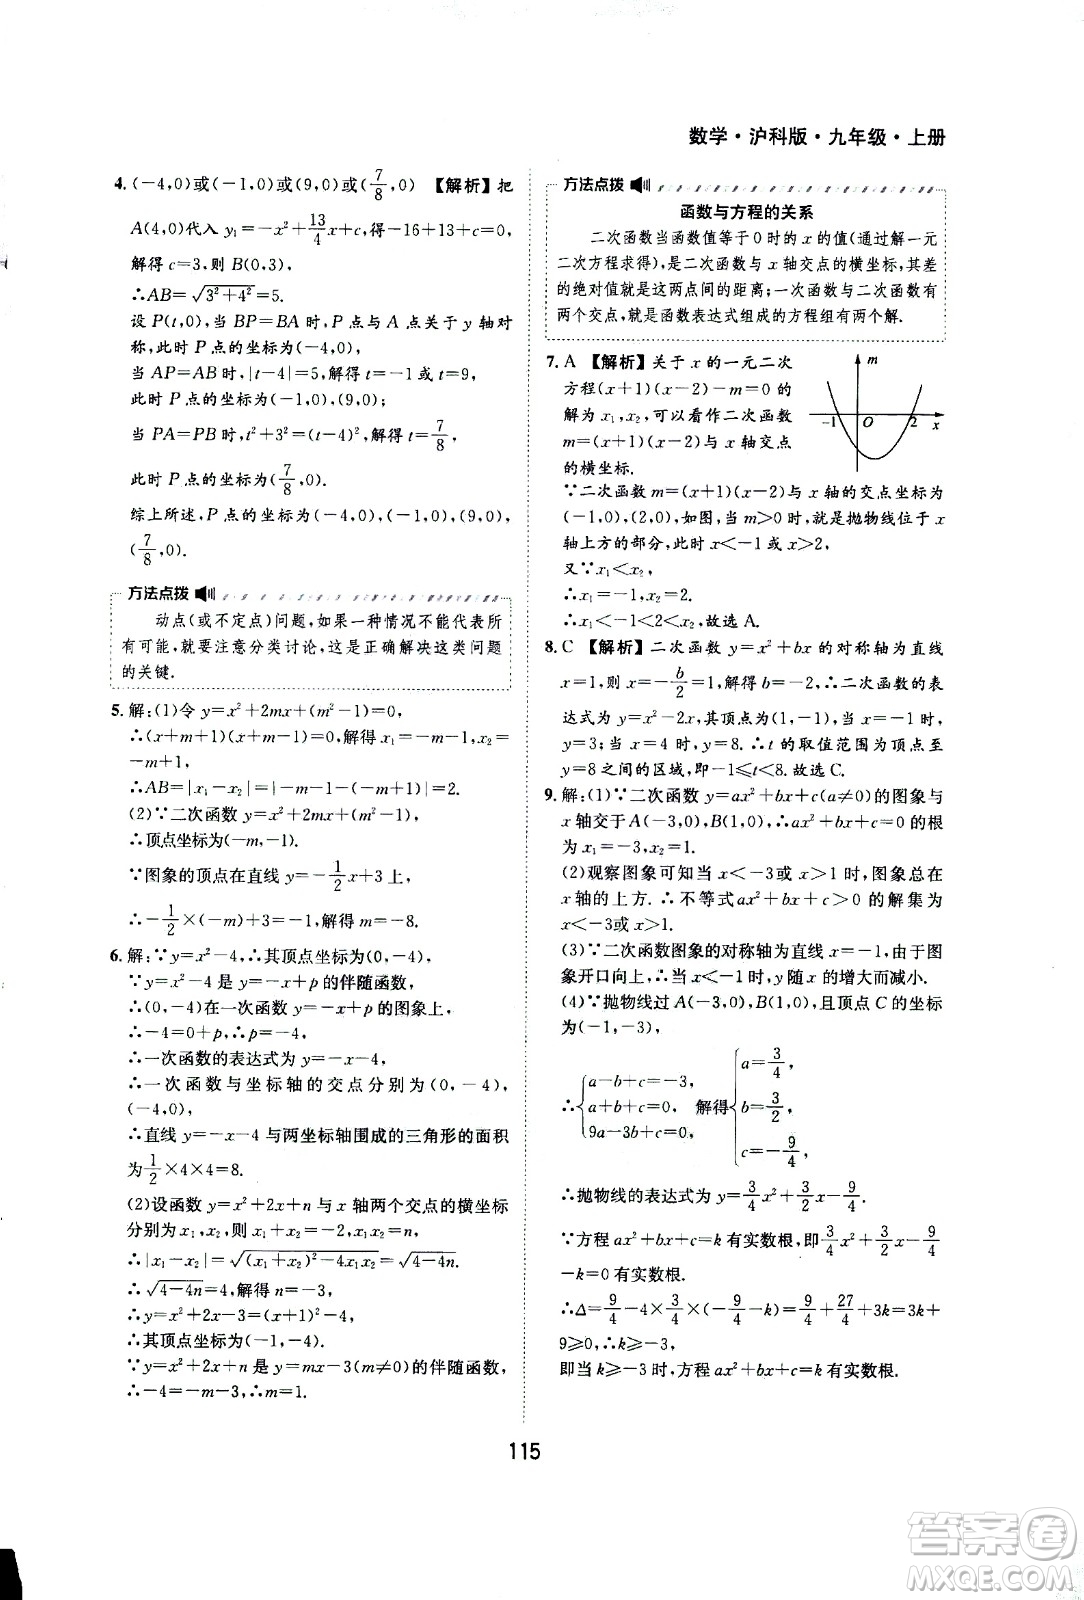 数学·沪科版·九年级·上册
4. (-4,0)或(-1,0)或(9,0)或(7/8,0) 【解析】把
A(4,0)代入 y₁=-x²+13/4x+c得:-16+13+c=0,
解得 c=3,则 B(0,3),
∴AB=√(3²+4²)=5.
设 P(t,0),当 BP=BA 时,P 点与 A 点关于 y 轴对
称,此时 P 点的坐标为(-4,0);
当 AP=AB 时,|t-4|=5,解得 t=-1 或 t=9,
此时 P 点的坐标为(-1,0),(9,0);
当 PA=PB 时,t²+3²=(t-4)²,解得 t=7/8,
此时 P 点的坐标为(7/8,0).
综上所述,P 点的坐标为(-4,0),(-1,0),(9,0),
(7/8,0).
方法点拨
动点(或不定点)问题,如果一种情况不能代表所
有可能,就要注意分类讨论,这是正确解决这类问题
的关键.
5. 解:(1)令 y=x²+2mx+(m²-1)=0,
∴(x+m+1)(x+m-1)=0,解得 x₁=-m-1,x₂=
-m+1,
∴AB=|x₁-x₂|=|-m-1-(-m+1)|=2.
(2)∵二次函数 y=x²+2mx+(m²-1),
∴顶点坐标为(-m,-1).
∵图象的顶点在直线 y=-1/2x+3上,
∴-1/2×(-m)+3=-1,解得 m=-8.
6. 解:∵y=x²-4,∴其顶点坐标为(0,-4),
∵y=x²-4 是 y=-x+p 的伴随函数,
∴(0,-4)在一次函数 y=-x+p 的图象上,
∴-4=0+p,∴p=-4,
∴一次函数的表达式为 y=-x-4,
∴一次函数与坐标轴的交点分别为(0,-4),
(-4,0),
∴直线 y=-x-4 与两坐标轴围成的三角形的面积
为1/2×4×4=8.
(2)设函数 y=x²+2x+n 与 x 轴两个交点的横坐标
分别为 x₁,x₂,则 x₁+x₂=-2,x₁x₂=n,
∴|x₁-x₂|=√((x₁+x₂)²-4x₁x₂)=√(4-4n).
∴√(4-4n)=4,解得 n=-3,
∴y=x²+2x-3=(x+1)²-4,
∴其顶点坐标为(-1,-4),
∵y=x²+2x+n 是 y=mx-3(m≠0)的伴随函数,
∴-4=-m-3,∴m=1.
方法点拨
函数与方程的关系
二次函数当函数值等于0时的 x 的值(通过解一元
二次方程求得),是二次函数与 x 轴交点的横坐标,其差
的绝对值就是这两点间的距离;一次函数与二次函数有
两个交点,就是函数表达式组成的方程组有两个解.
7. A 【解析】关于 x 的一元二次
方程(x+1)(x-2)-m=0 的
解为 x₁,x₂,可以看作二次函数
m=(x+1)(x-2)与 x 轴交点
的横坐标.
m
-1 O 2 x
∵二次函数 m=(x+1)(x-2)与 x 轴的交点坐标为
(-1,0),(2,0),如图,当 m>0 时,就是抛物线位于 x
轴上方的部分,此时 x<-1 或 x>2,
又∵x₁<x₂,
∴x₁=-1,x₂=2.
∴x₁<-1<2<x₂,故选 A.
8. C 【解析】二次函数 y=x²+bx 的对称轴为直线
x=1,则-b/2=1,解得 b=-2,∴二次函数的表
达式为 y=x²-2x,其顶点为(1,-1),当 x=-1 时,
y=3;当 x=4 时,y=8.∴t 的取值范围为顶点至
y=8 之间的区域,即-1⩽t<8.故选 C.
9. 解:(1)∵二次函数 y=ax²+bx+c(a≠0)的图象与
x 轴交于 A(-3,0),B(1,0),∴ax²+bx+c=0 的根
为 x₁=-3,x₂=1.
(2)观察图象可知当 x<-3 或 x>1 时,图象总在
x 轴的上方.∴不等式ax²+bx+c>0 的解集为
x<-3或 x>1.
(3)∵二次函数图象的对称轴为直线 x=-1,由于图
象开口向上,∴当 x<-1 时,y 随 x 的增大而减小.
(4)∵抛物线过 A(-3,0),B(1,0),且顶点 C 的坐标
为(-1,-3),
∴{a-b+c=-3, a+b+c=0, 9a-3b+c=0, 解得{a=3/4, b=3/2, c=-9/4,
∴抛物线的表达式为 y=3/4x²+3/2x-9/4,
∵方程 ax²+bx+c=k 有实数根,即3/4x²+3/2x-9/4
-k=0 有实数根.
∴Δ=9/4-4×3/4×(-9/4-k)=9/4+27/4+3k=3k+
9⩾0,∴k⩾-3,
即当 k⩾-3 时,方程 ax²+bx+c=k 有实数根.
115
答案圈
MXQE.COM